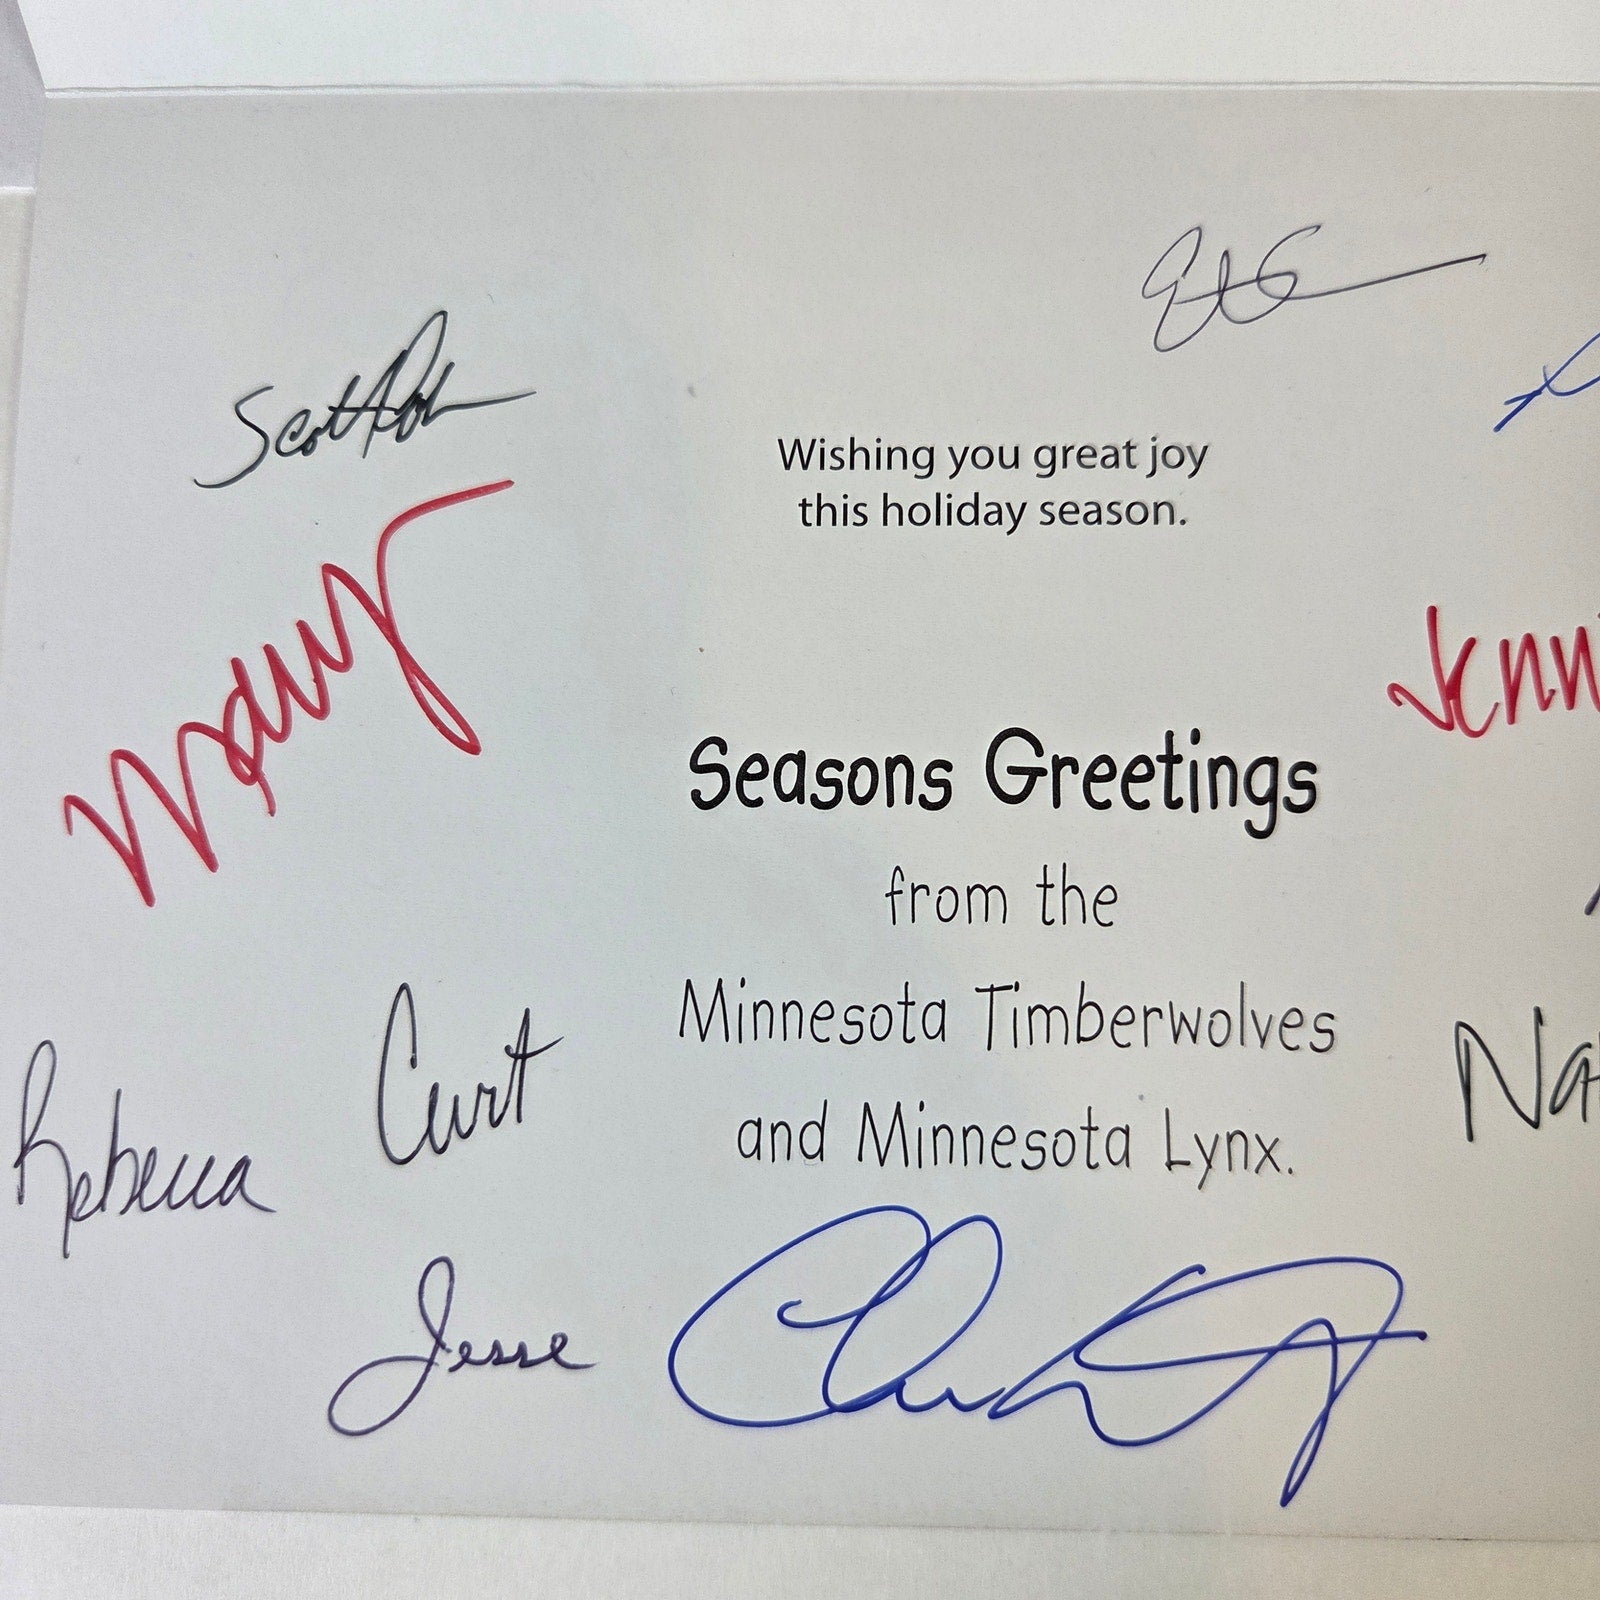 Scott
Wishing you great joy
this holiday season.
Mary
Jenni
Seasons Greetings
from the
Minnesota Timberwolves
and Minnesota Lynx.
Curt
Rebecca
Jesse